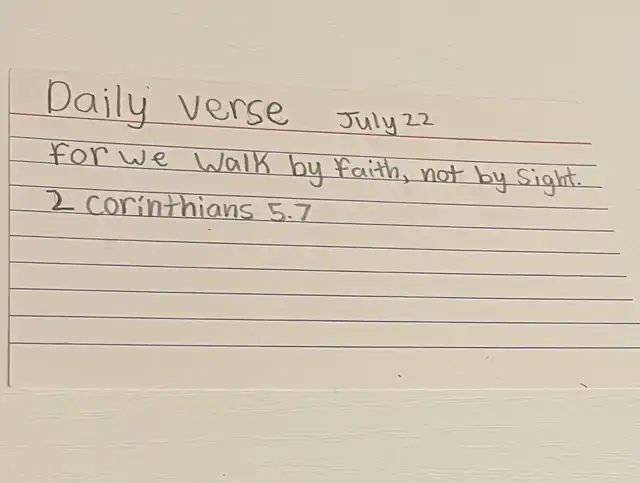 Daily verse July 22
For we walk by faith, not by sight.
2 corinthians 5.7